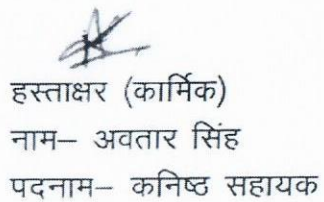 हस्ताक्षर (कार्मिक)
नाम– अवतार सिंह
पदनाम– कनिष्ठ सहायक